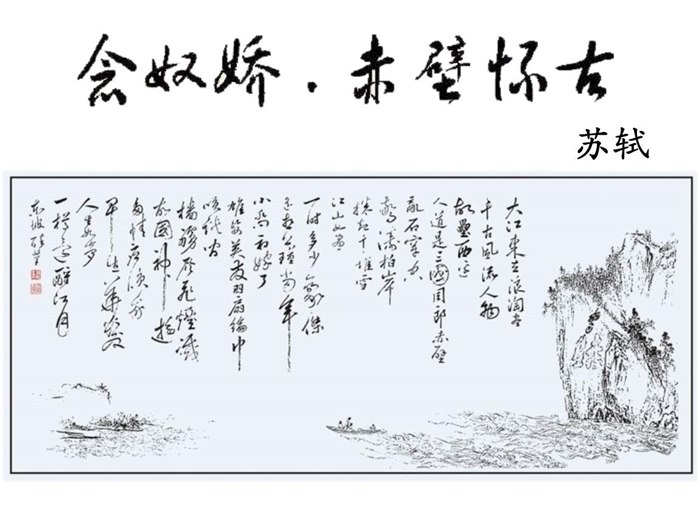 念奴娇·赤壁怀古
苏轼
大江東去浪淘盡
千古風流人物
故壘西邊
人道是三國周郎赤壁
亂石穿空
驚濤拍岸
捲起千堆雪
江山如畫
一時多少豪傑
遙想公瑾當年
小喬初嫁了
雄姿英發羽扇綸巾
談笑間
檣櫓灰飛煙滅
故國神遊
多情應笑我
早生華髮
人生如夢
一樽還酹江月
東坡